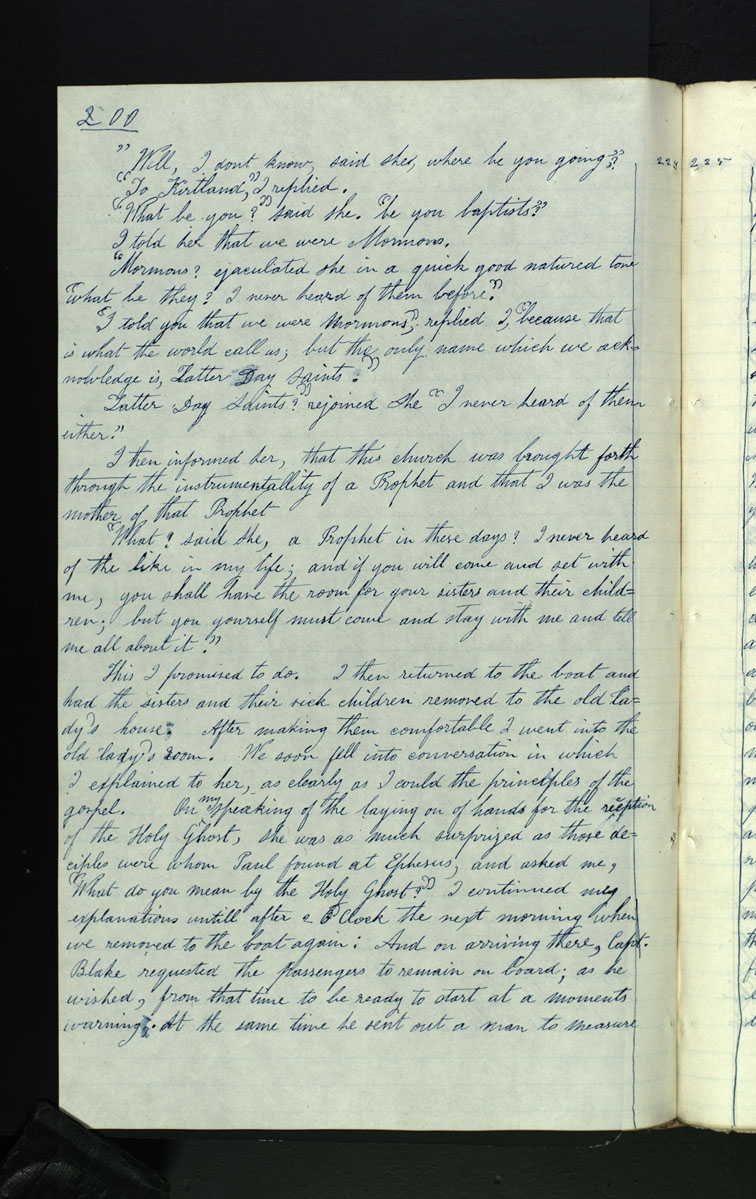 200
" Well, I dont know, said she, where be you going"?
"To Kirtland," I replied.
"What be you?" said she. "be you baptists?"
I told her that we were Mormons.
"Mormons? ejaculated she in a quick good natured tone
"what be they? I never heard of them before."
"I told you that we were Mormons", replied I, "because that
is what the world call us; but the only name which we ack=
nowledge is, Latter Day Saints."
Latter Day Saints?" rejoined she "I never heard of them
either."
I then informed her, that this church was brought forth
through the instrumentallity of a Prophet and that I was the
mother of that Prophet
"What? said she, a Prophet in these days? I never heard
of the like in my life; and if you will come and set with
me, you shall have the room for your sisters and their child=
ren; but you yourself must come and stay with me and tell
me all about it."
This I promised to do. I then returned to the boat and
had the sisters and their sick children removed to the old la=
dy's house; After making them comfortable I went into the
old lady's room. We soon fell into conversation in which
I explained to her, as clearly as I could the principles of the
gospel. On my speaking of the laying on of hands for the reception
of the Holy Ghost, she was as much surprized as those de=
ciples were whom Paul found at Ephesus, and asked me,
"What do you mean by the Holy Ghost?" I continued my
explanations untill after 2 O'Clock the next morning when
we removed to the boat again: And on arriving there, Capt.
Blake requested the passengers to remain on board; as he
wished, from that time to be ready to start at a moments
warning. At the same time he sent out a man to measure
224 225